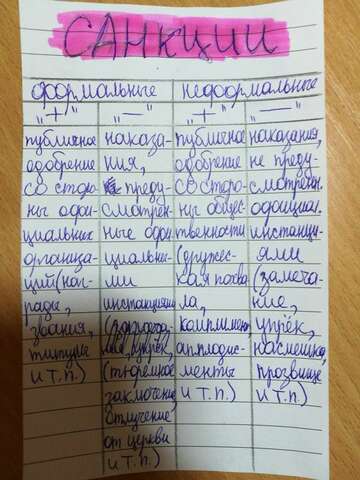 САНКЦИИ
формальные
неформальные
"+"
"—"
"+"
"—"
публичное
одобрение
со сторо-
ны офи-
циальных
организа-
ций(наг-
рады,
звания,
титулы
и т.п.)
наказа-
ния,
преду-
смотрен-
ные офи-
циальны-
ми
инстанциями
упрёк,
(тюремное
заключение,
отлучение
от церкви
и т.п.)
публичное
одобрение
со сторо-
ны общес-
твенности
(дружес-
кая похва-
ла,
комплимент,
апплодис-
менты
и т.п.)
наказания,
не преду-
смотрен.
официал.
инстанци-
ями
(замеча-
ние,
упрёк,
насмешка,
прозвище
и т.п.)